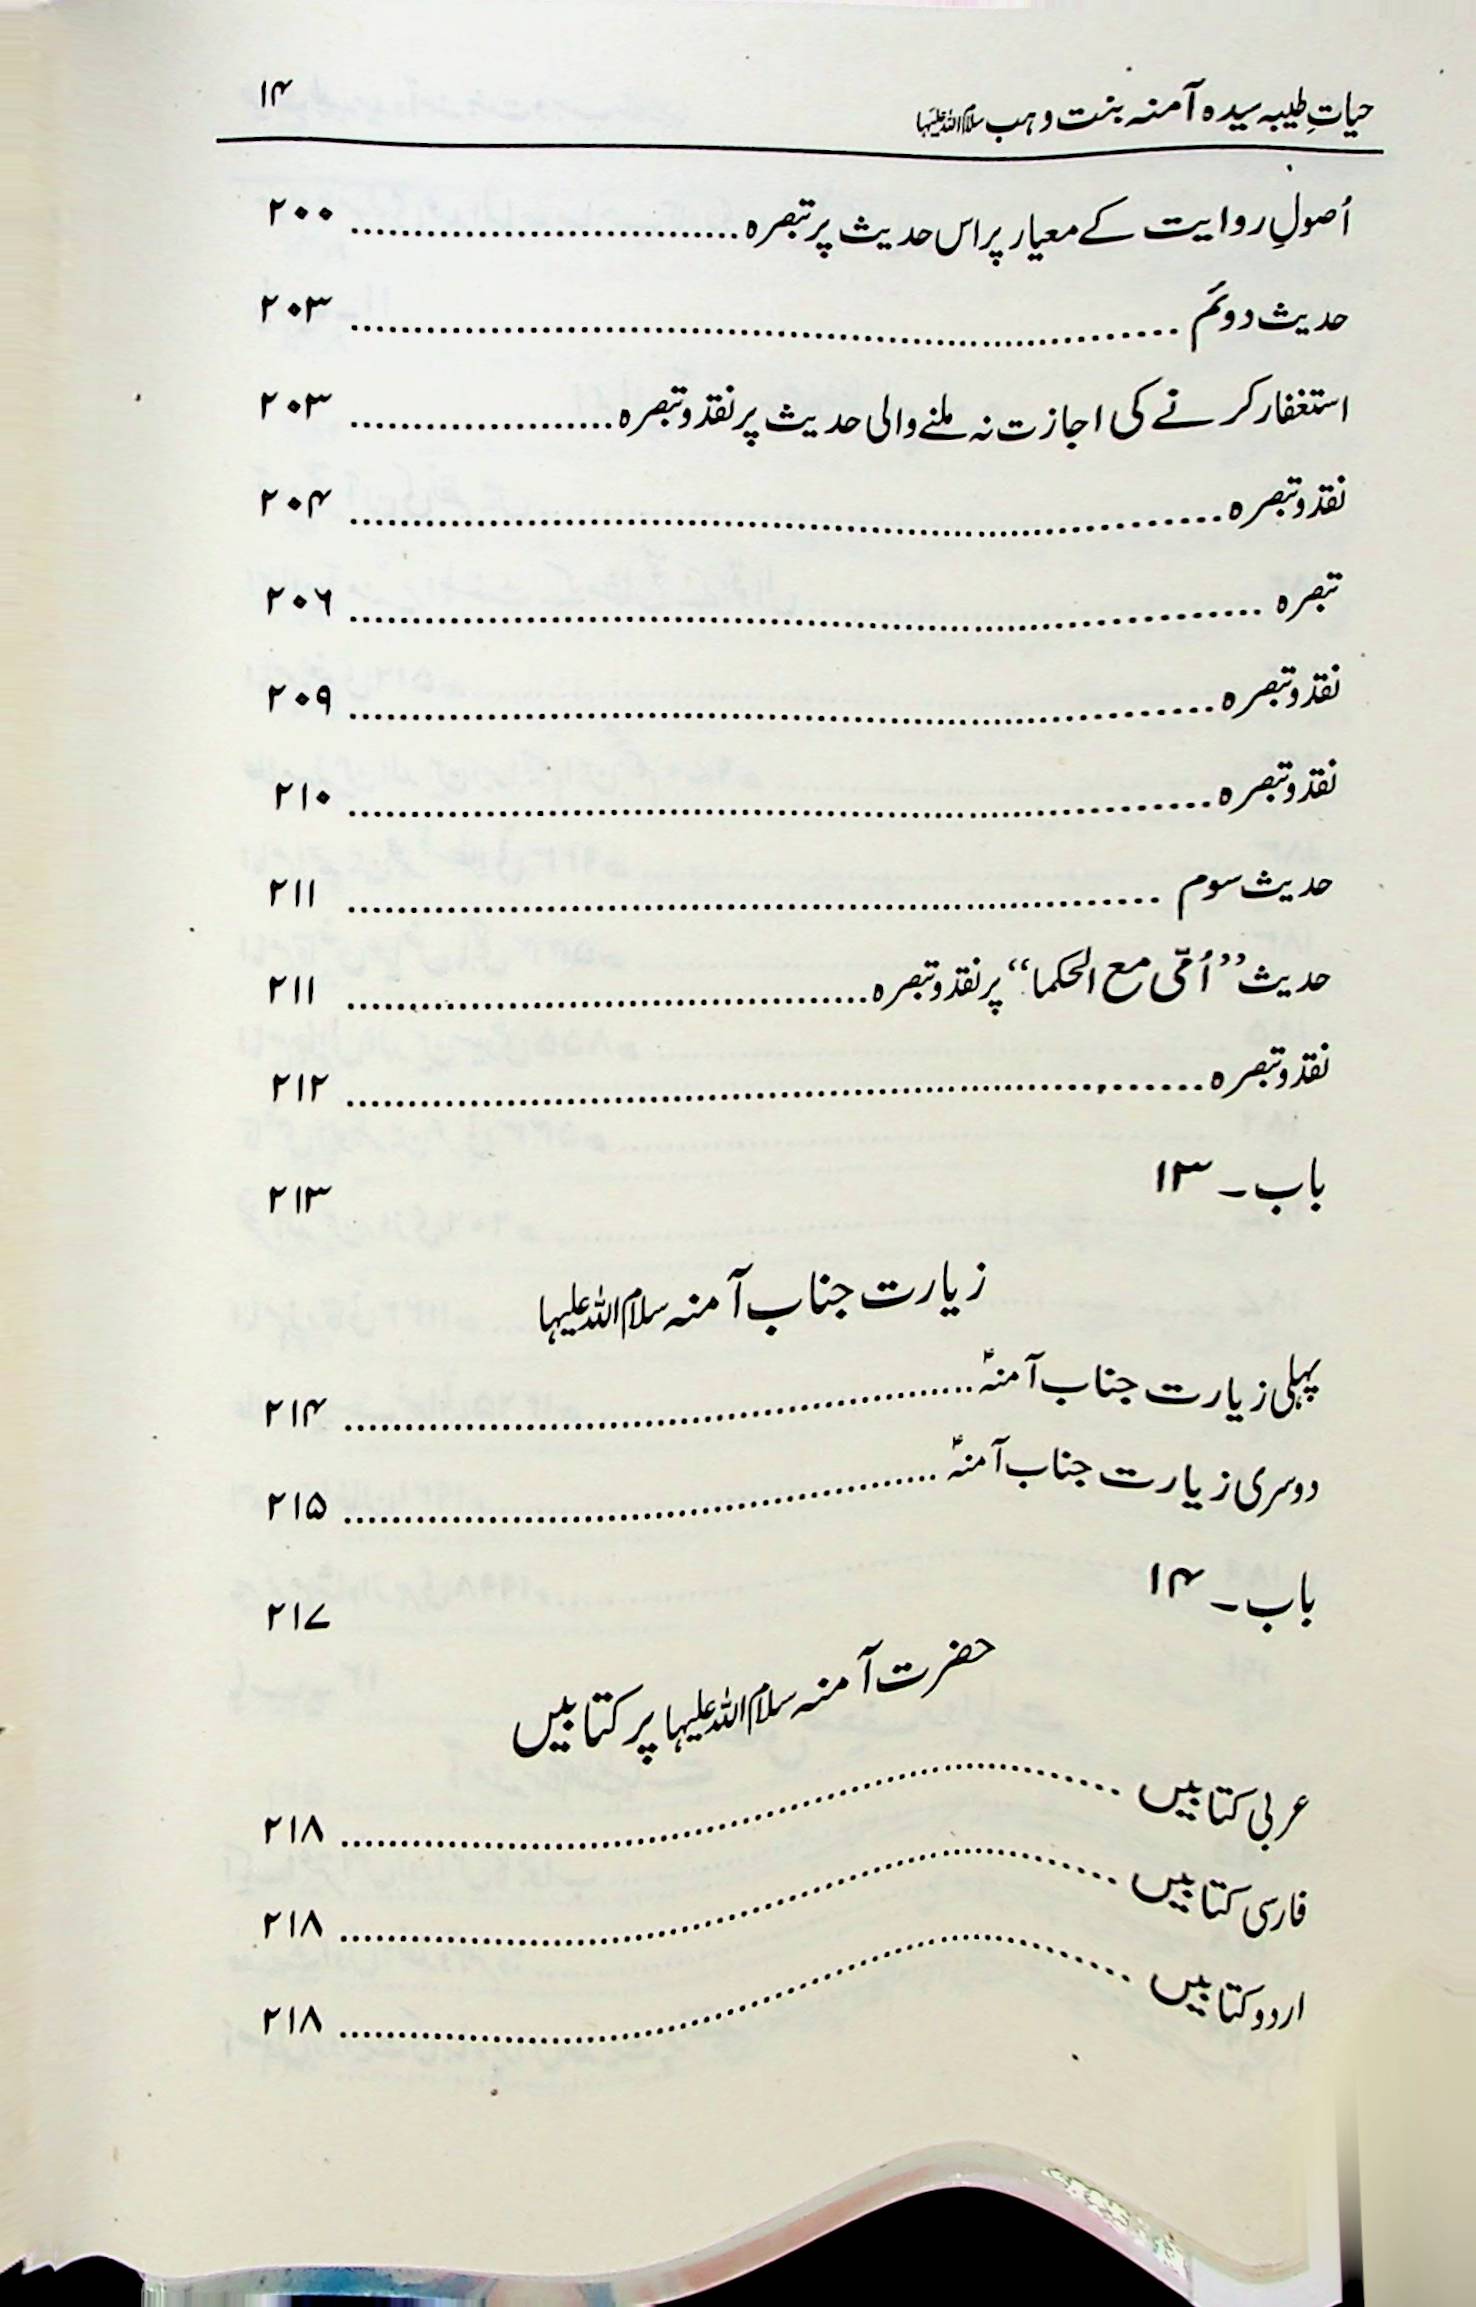 حیاتِ طیبہ سیدہ آمنہ بنت وہب سلام اللہ علیہا ۱۴
اُصولِ روایت کے معیار پر اس حدیث پر تبصرہ ........ ۲۰۰
حدیث دوئم ........ ۲۰۳
استغفار کرنے کی اجازت نہ ملنے والی حدیث پر نقد و تبصرہ ........ ۲۰۳
نقد و تبصرہ ........ ۲۰۴
تبصرہ ........ ۲۰۶
نقد و تبصرہ ........ ۲۰۹
نقد و تبصرہ ........ ۲۱۰
حدیث سوم ........ ۲۱۱
حدیث ”اُمّی مع الحکما“ پر نقد و تبصرہ ........ ۲۱۱
نقد و تبصرہ ........ ۲۱۲
باب ۔ ۱۳ ۲۱۳
زیارت جناب آمنہ سلام اللہ علیہا
پہلی زیارت جناب آمنہؑ ........ ۲۱۴
دوسری زیارت جناب آمنہؑ ........ ۲۱۵
باب ۔ ۱۴ ۲۱۷
حضرت آمنہ سلام اللہ علیہا پر کتابیں
عربی کتابیں ........ ۲۱۸
فارسی کتابیں ........ ۲۱۸
اردو کتابیں ........ ۲۱۸